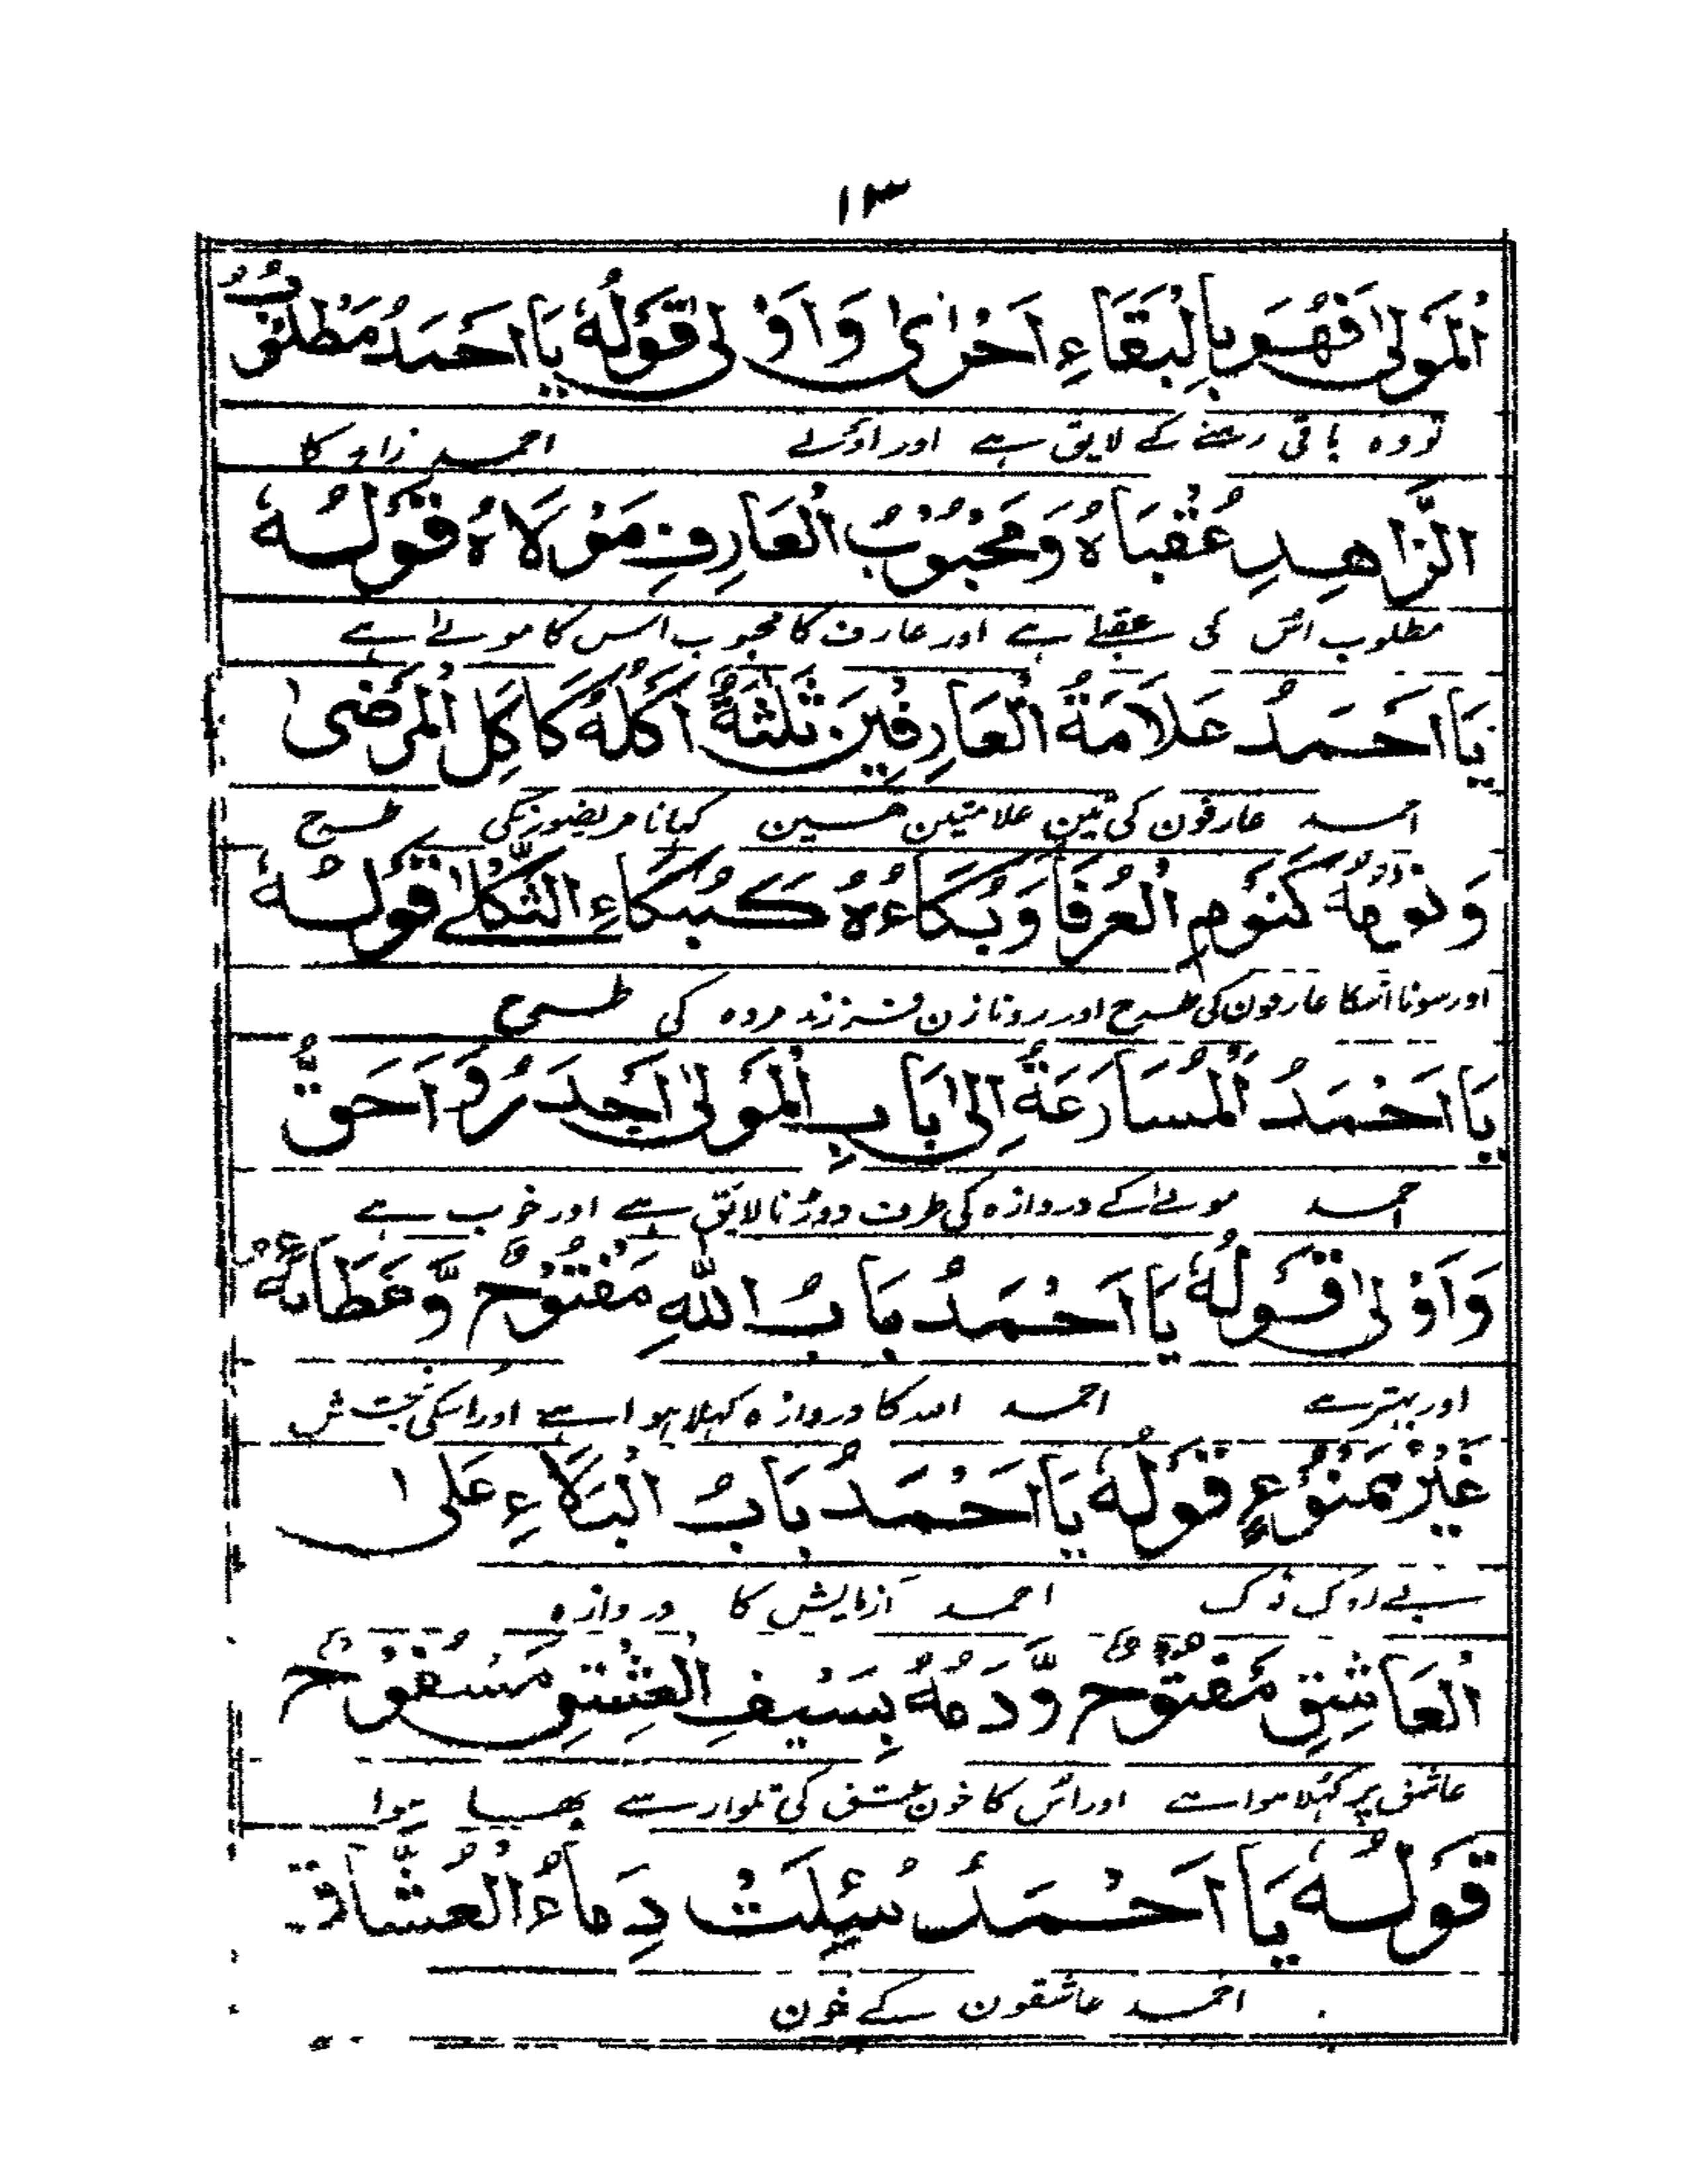 ١٣
الْمَوْلىٰ فَهُوَ بِالْبَقَاءِ اَحْرٰى وَاَوْلى قَوْلُهٗ يَا اَحْمَدُ مَطْلُوْبُ
تو وہ باقی رہنے کے لایق ہے اور اولے احمد زاہد کا
الزَّاهِدِ عُقْبَاهُ وَمَحْبُوْبُ الْعَارِفِ مَوْلَاهُ قَوْلُهٗ
مطلوب اس کی عقبےٰ ہے اور عارف کا محبوب اس کا مولےٰ ہے
يَا اَحْمَدُ عَلَامَةُ الْعَارِفِيْنَ ثَلٰثَةٌ اَكْلُهٗ كَاَكْلِ الْمَرْضىٰ
احمد عارفون کی تین علامتین ہین کہانا مریضونکی طرح
وَنَوْمُهٗ كَنَوْمِ الْعُرَفَا وَبُكَاءُهُ كَبُكَاءِ الثَّكْلٰے قَوْلُهٗ
اور سونا اسکا عارفون کی طرح اور رونا زن فرزند مردہ کی طرح
يَا اَحْمَدُ الْمُسَارَعَةُ اِلىٰ بَابِ الْمَوْلىٰ اَجْدَرُ وَاَحَقُّ
احمد مولےٰ کے دروازہ کی طرف دوڑنا لایق ہے اور خوب ہے
وَاَوْلىٰ قَوْلُهٗ يَا اَحْمَدُ بَابُ اللّٰهِ مَفْتُوْحٌ وَّعَطَاءُهٗ
اور بہتر ہے احمد اللہ کا دروازہ کہلا ہوا ہے اور اسکی بخشش
غَيْرُ مَمْنُوْعٍ قَوْلُهٗ يَا اَحْمَدُ بَابُ الْبَلَاءِ عَلىٰ
بے روک ٹوک احمد آزمایش کا دروازہ
الْعَاشِقِ مَفْتُوْحٌ وَّدَمُهٗ بِسَيْفِ الْعِشْقِ مَسْفُوْحٌ
عاشق پر کہلا ہوا ہے اور اس کا خون عشق کی تلوار سے بہا ہوا
قَوْلُهٗ يَا اَحْمَدُ سُئِلَتْ دِمَاءُ الْعُشَّاقِ
احمد عاشقون کے خون